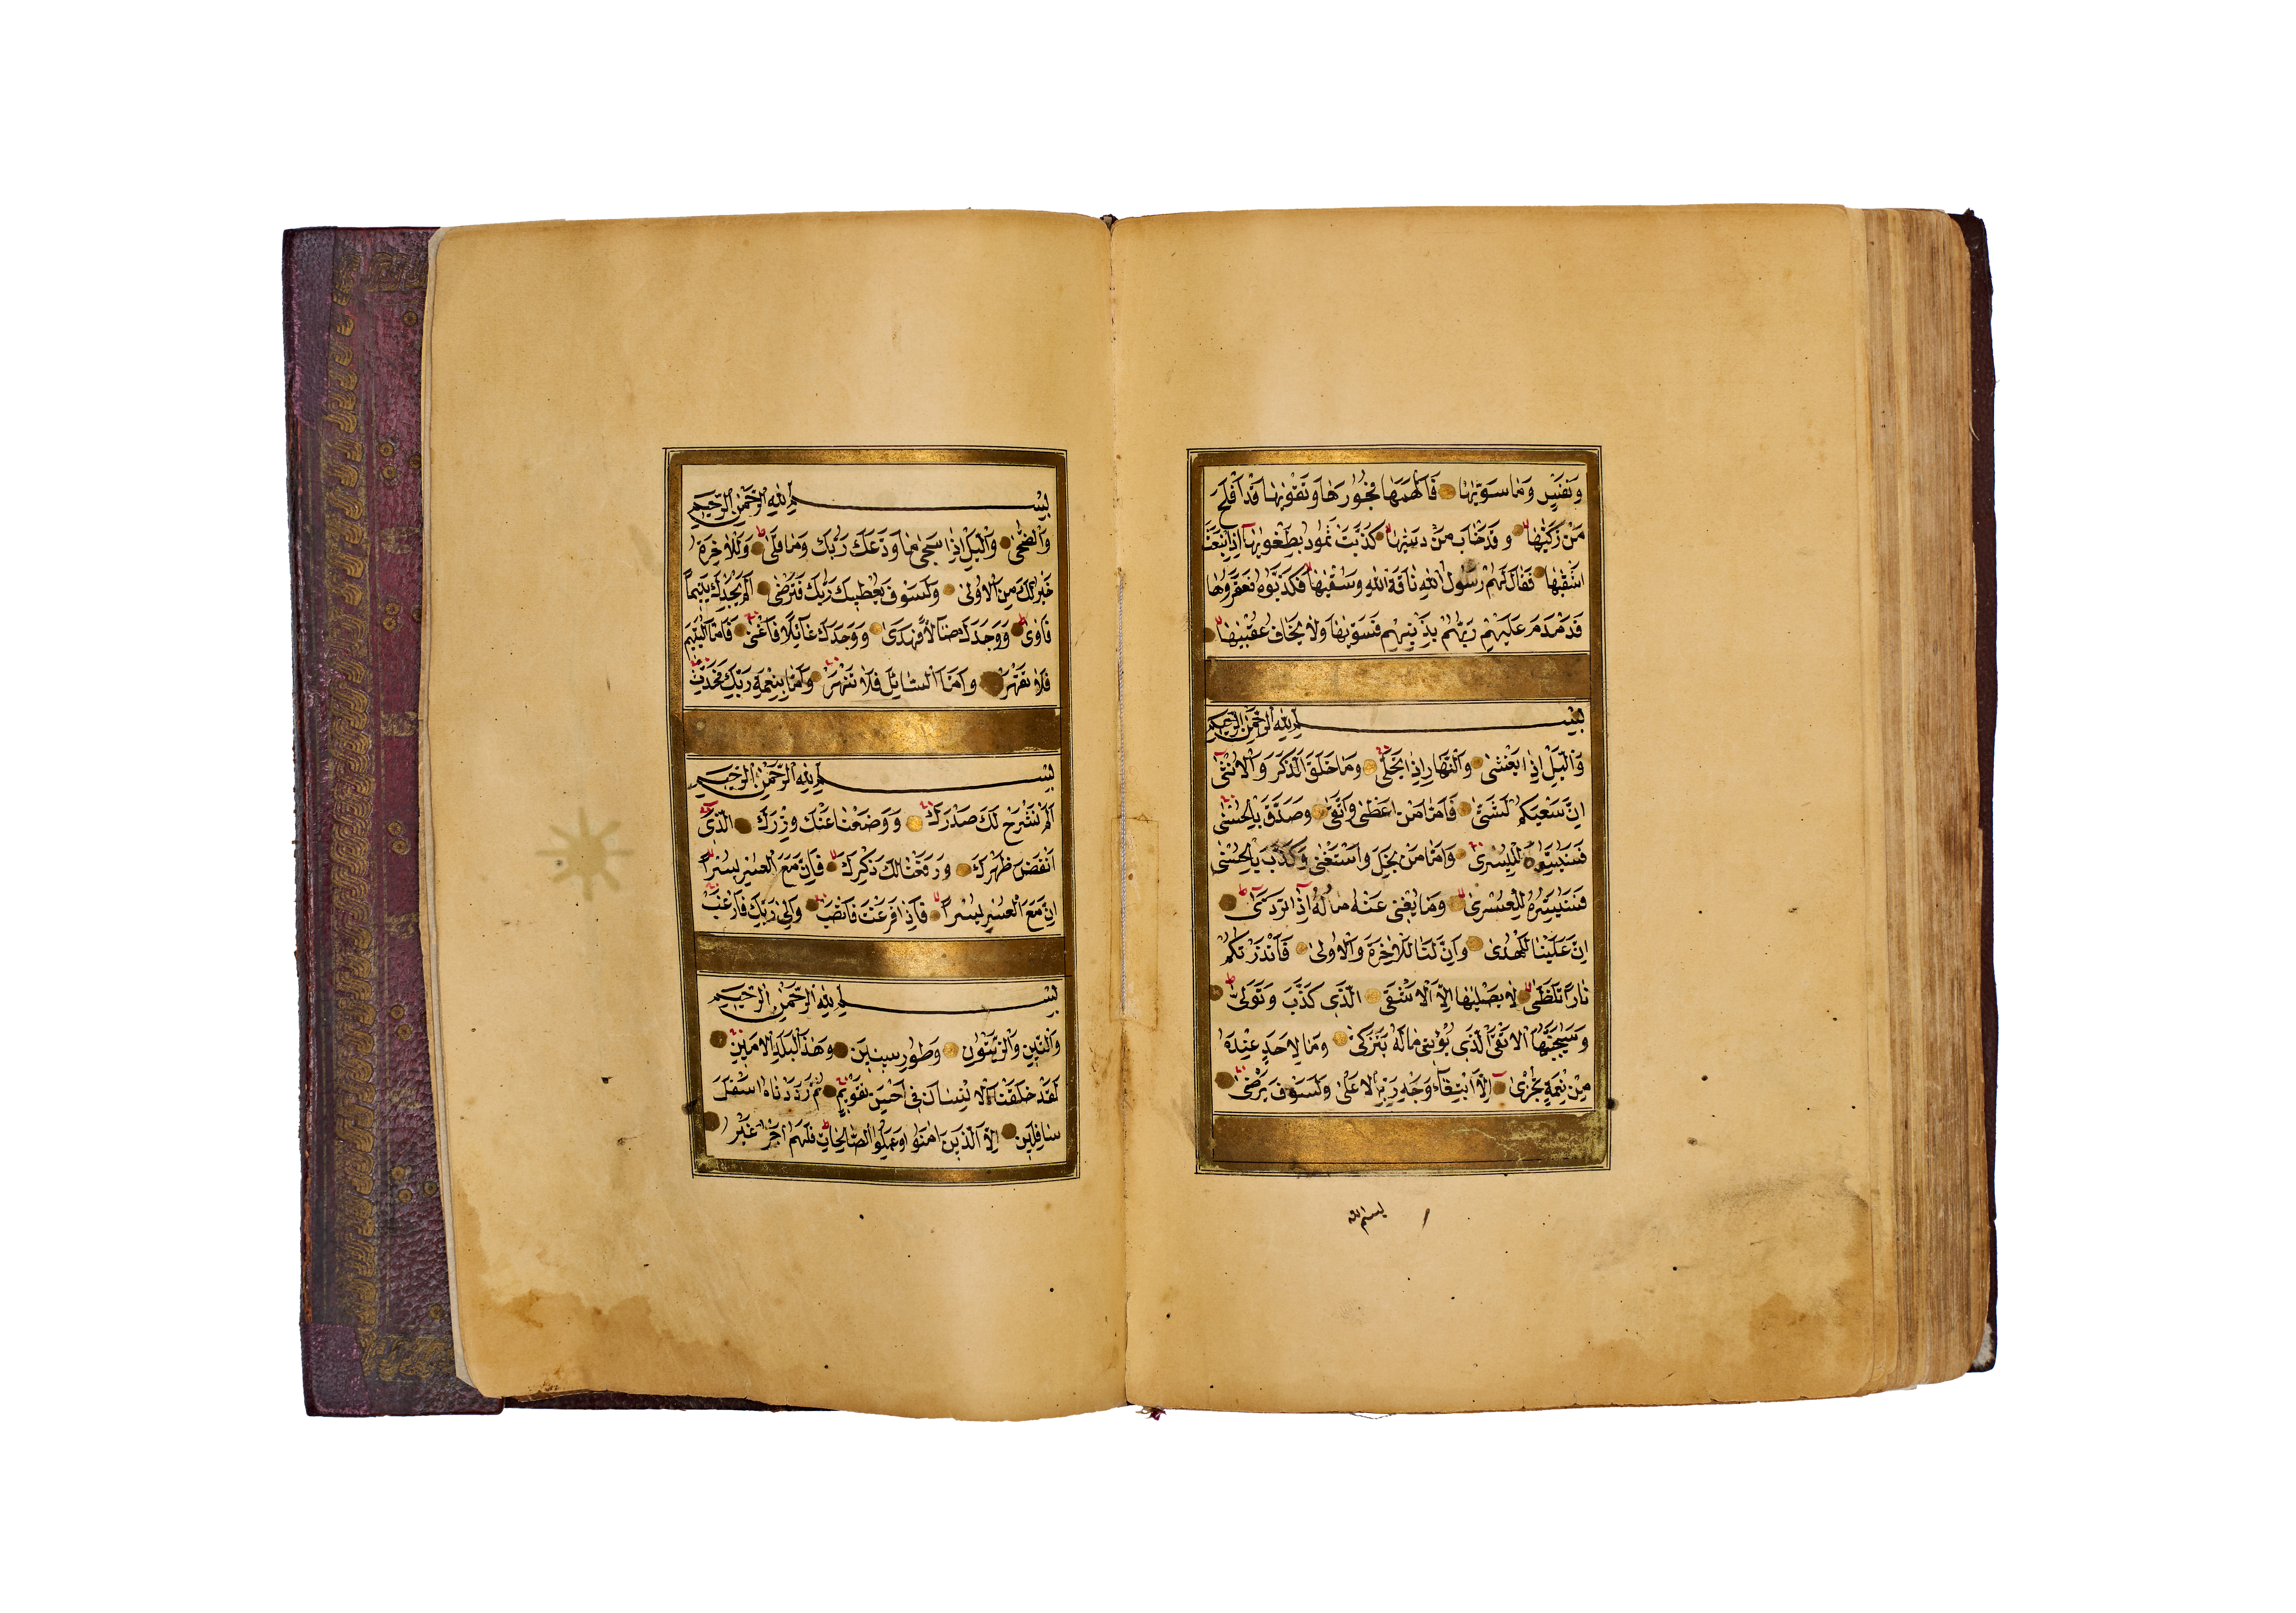 وَنَفْسٍ وَمَا سَوّٰيهَا فَاَلْهَمَهَا فُجُورَهَا وَتَقْوٰيهَا قَدْ اَفْلَحَ
مَنْ زَكّٰيهَا وَقَدْ خَابَ مَنْ دَسّٰيهَا كَذَّبَتْ ثَمُودُ بِطَغْوٰيهَا اِذِ انْبَعَثَ
اَشْقٰيهَا فَقَالَ لَهُمْ رَسُولُ اللّٰهِ نَاقَةَ اللّٰهِ وَسُقْيٰهَا فَكَذَّبُوهُ فَعَقَرُوهَا
فَدَمْدَمَ عَلَيْهِمْ رَبُّهُمْ بِذَنْبِهِمْ فَسَوّٰيهَا وَلَا يَخَافُ عُقْبٰيهَا
بِسْمِ اللّٰهِ الرَّحْمٰنِ الرَّحِيمِ
وَالَّيْلِ اِذَا يَغْشٰى وَالنَّهَارِ اِذَا تَجَلّٰى وَمَا خَلَقَ الذَّكَرَ وَالْاُنْثٰى
اِنَّ سَعْيَكُمْ لَشَتّٰى فَاَمَّا مَنْ اَعْطٰى وَاتَّقٰى وَصَدَّقَ بِالْحُسْنٰى
فَسَنُيَسِّرُهُ لِلْيُسْرٰى وَاَمَّا مَنْ بَخِلَ وَاسْتَغْنٰى وَكَذَّبَ بِالْحُسْنٰى
فَسَنُيَسِّرُهُ لِلْعُسْرٰى وَمَا يُغْنِى عَنْهُ مَالُهُ اِذَا تَرَدّٰى
اِنَّ عَلَيْنَا لَلْهُدٰى وَاِنَّ لَنَا لَلْاٰخِرَةَ وَالْاُولٰى فَاَنْذَرْتُكُمْ
نَارًا تَلَظّٰى لَا يَصْلٰيهَا اِلَّا الْاَشْقٰى اَلَّذِى كَذَّبَ وَتَوَلّٰى
وَسَيُجَنَّبُهَا الْاَتْقٰى اَلَّذِى يُؤْتِى مَالَهُ يَتَزَكّٰى وَمَا لِاَحَدٍ عِنْدَهُ
مِنْ نِعْمَةٍ تُجْزٰى اِلَّا ابْتِغَاءَ وَجْهِ رَبِّهِ الْاَعْلٰى وَلَسَوْفَ يَرْضٰى
بسم الله
بِسْمِ اللّٰهِ الرَّحْمٰنِ الرَّحِيمِ
وَالضُّحٰى وَالَّيْلِ اِذَا سَجٰى مَا وَدَّعَكَ رَبُّكَ وَمَا قَلٰى وَلَلْاٰخِرَةُ
خَيْرٌ لَكَ مِنَ الْاُولٰى وَلَسَوْفَ يُعْطِيكَ رَبُّكَ فَتَرْضٰى اَلَمْ يَجِدْكَ يَتِيمًا
فَاٰوٰى وَوَجَدَكَ ضَالًّا فَهَدٰى وَوَجَدَكَ عَائِلًا فَاَغْنٰى فَاَمَّا الْيَتِيمَ
فَلَا تَقْهَرْ وَاَمَّا السَّائِلَ فَلَا تَنْهَرْ وَاَمَّا بِنِعْمَةِ رَبِّكَ فَحَدِّثْ
بِسْمِ اللّٰهِ الرَّحْمٰنِ الرَّحِيمِ
اَلَمْ نَشْرَحْ لَكَ صَدْرَكَ وَوَضَعْنَا عَنْكَ وِزْرَكَ اَلَّذِى
اَنْقَضَ ظَهْرَكَ وَرَفَعْنَا لَكَ ذِكْرَكَ فَاِنَّ مَعَ الْعُسْرِ يُسْرًا
اِنَّ مَعَ الْعُسْرِ يُسْرًا فَاِذَا فَرَغْتَ فَانْصَبْ وَاِلٰى رَبِّكَ فَارْغَبْ
بِسْمِ اللّٰهِ الرَّحْمٰنِ الرَّحِيمِ
وَالتِّينِ وَالزَّيْتُونِ وَطُورِ سِينِينَ وَهٰذَا الْبَلَدِ الْاَمِينِ
لَقَدْ خَلَقْنَا الْاِنْسَانَ فِى اَحْسَنِ تَقْوِيمٍ ثُمَّ رَدَدْنَاهُ اَسْفَلَ
سَافِلِينَ اِلَّا الَّذِينَ اٰمَنُوا وَعَمِلُوا الصَّالِحَاتِ فَلَهُمْ اَجْرٌ غَيْرُ